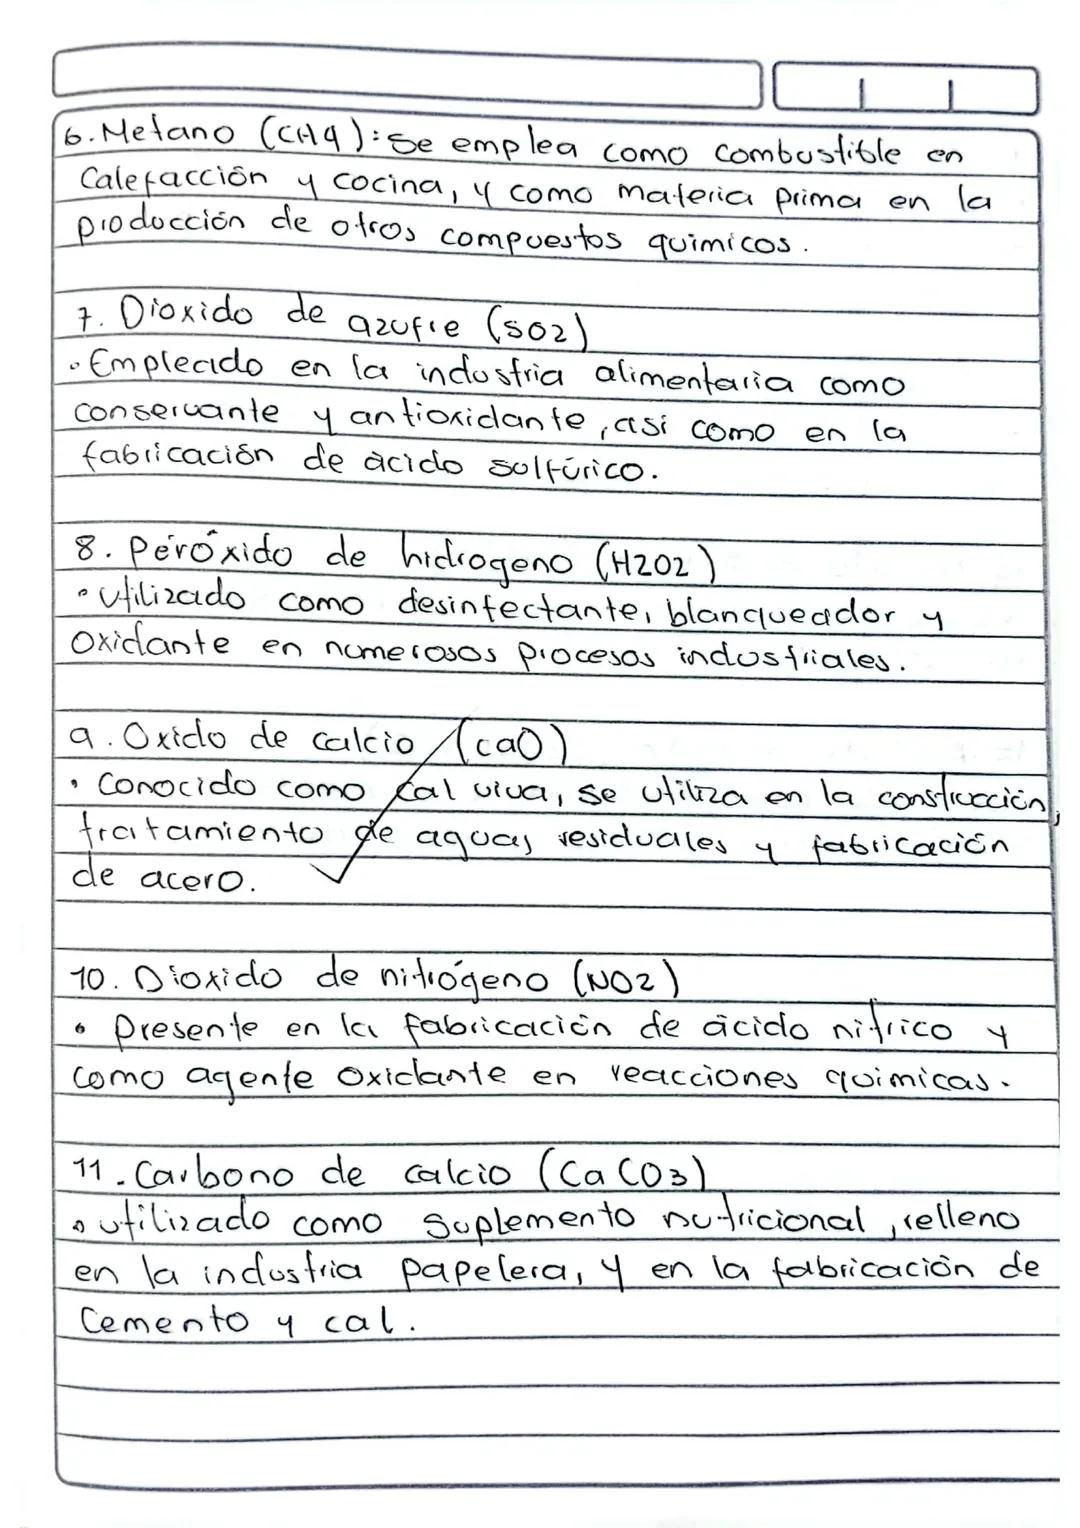 6. Metano (CH4): Se emplea como combustible en
Calefacción y cocina, y como materia prima en la
producción de otros compuestos quimicos.
7. Dioxido de azufre (SO2)
• Empleado en la industria alimentaria como
conservante y antioxidante, así como en la
fabricación de ácido sulfúrico.
8. Peróxido de hidrogeno (H2O2)
• utilizado como desinfectante, blanqueador y
Oxidante en numerosos procesos industriales.
9. Oxido de calcio (caO)
• Conocido como cal viva, se utiliza en la construcción,
tratamiento de aguas residuales y fabricación
de acero.
10. Dioxido de nitrógeno (NO2)
• Presente en la fabricación de ácido nitrico y
como agente oxidante en reacciones quimicas.
11. Carbono de calcio (CaCO3)
• utilizado como suplemento nutricional, relleno
en la industria papelera, y en la fabricación de
Cemento y cal.